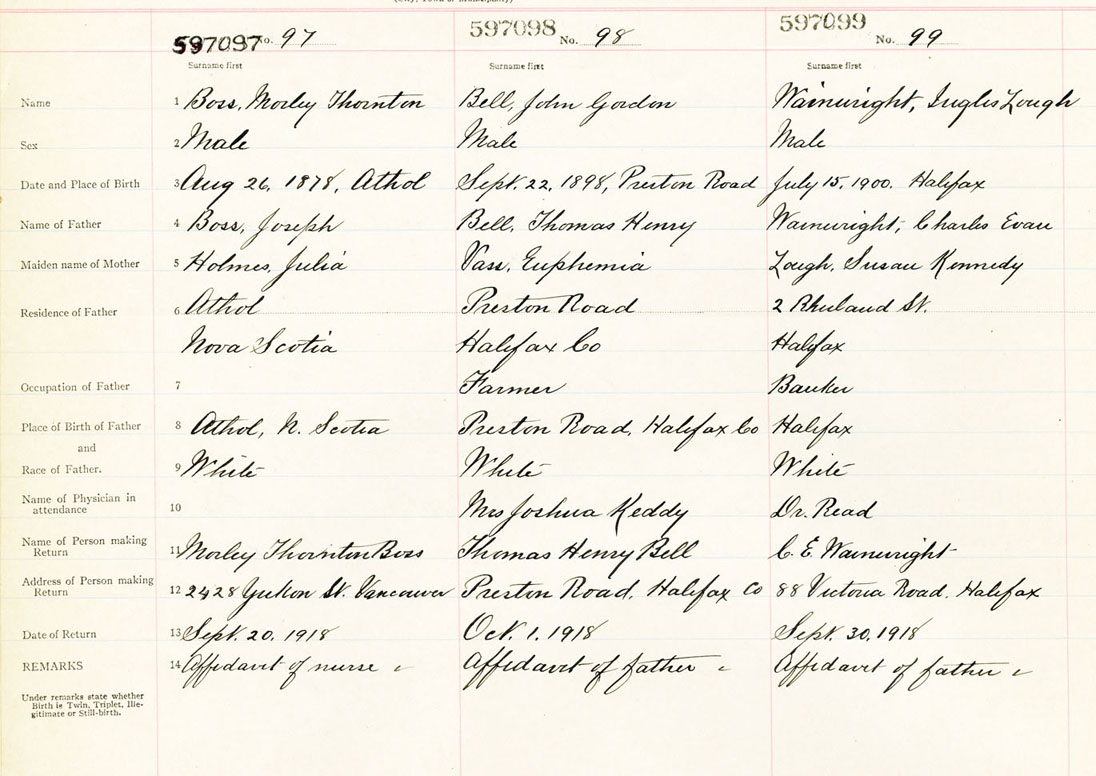 (City, Town or Municipality)
597097 No. 97 597098 No. 98 597099 No. 99
Surname first Surname first Surname first
Name 1 Boss, Morley Thornton Bell, John Gordon Wainwright, Inglis Lough
Sex 2 Male Male Male
Date and Place of Birth 3 Aug 26, 1878, Athol Sept. 22, 1898, Preston Road July 15, 1900. Halifax
Name of Father 4 Boss, Joseph Bell, Thomas Henry Wainwright, Charles Evan
Maiden name of Mother 5 Holmes, Julia Vass, Euphemia Lough, Susan Kennedy
Residence of Father 6 Athol Preston Road 2 Rhuland St.
Nova Scotia Halifax Co Halifax
Occupation of Father 7 Farmer Banker
Place of Birth of Father 8 Athol, N. Scotia Preston Road, Halifax Co Halifax
and
Race of Father. 9 White White White
Name of Physician in
attendance 10 Mrs Joshua Keddy Dr. Read
Name of Person making
Return 11 Morley Thornton Boss Thomas Henry Bell C. E. Wainwright
Address of Person making
Return 12 2428 Yukon St. Vancouver Preston Road, Halifax Co 88 Victoria Road, Halifax
Date of Return 13 Sept. 20, 1918 Oct. 1, 1918 Sept. 30, 1918
REMARKS 14 Affidavit of nurse Affidavit of father Affidavit of father
Under remarks state whether
Birth is Twin, Triplet, Ille-
gitimate or Still-birth.